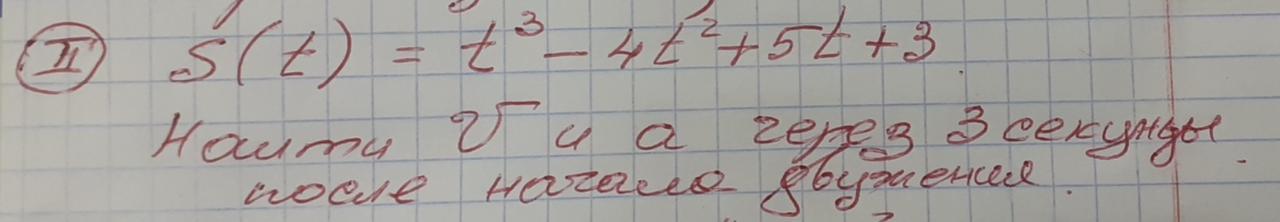 II S(t) = t³ - 4t² + 5t + 3
Найти V и a через 3 секунды
после начала движения.